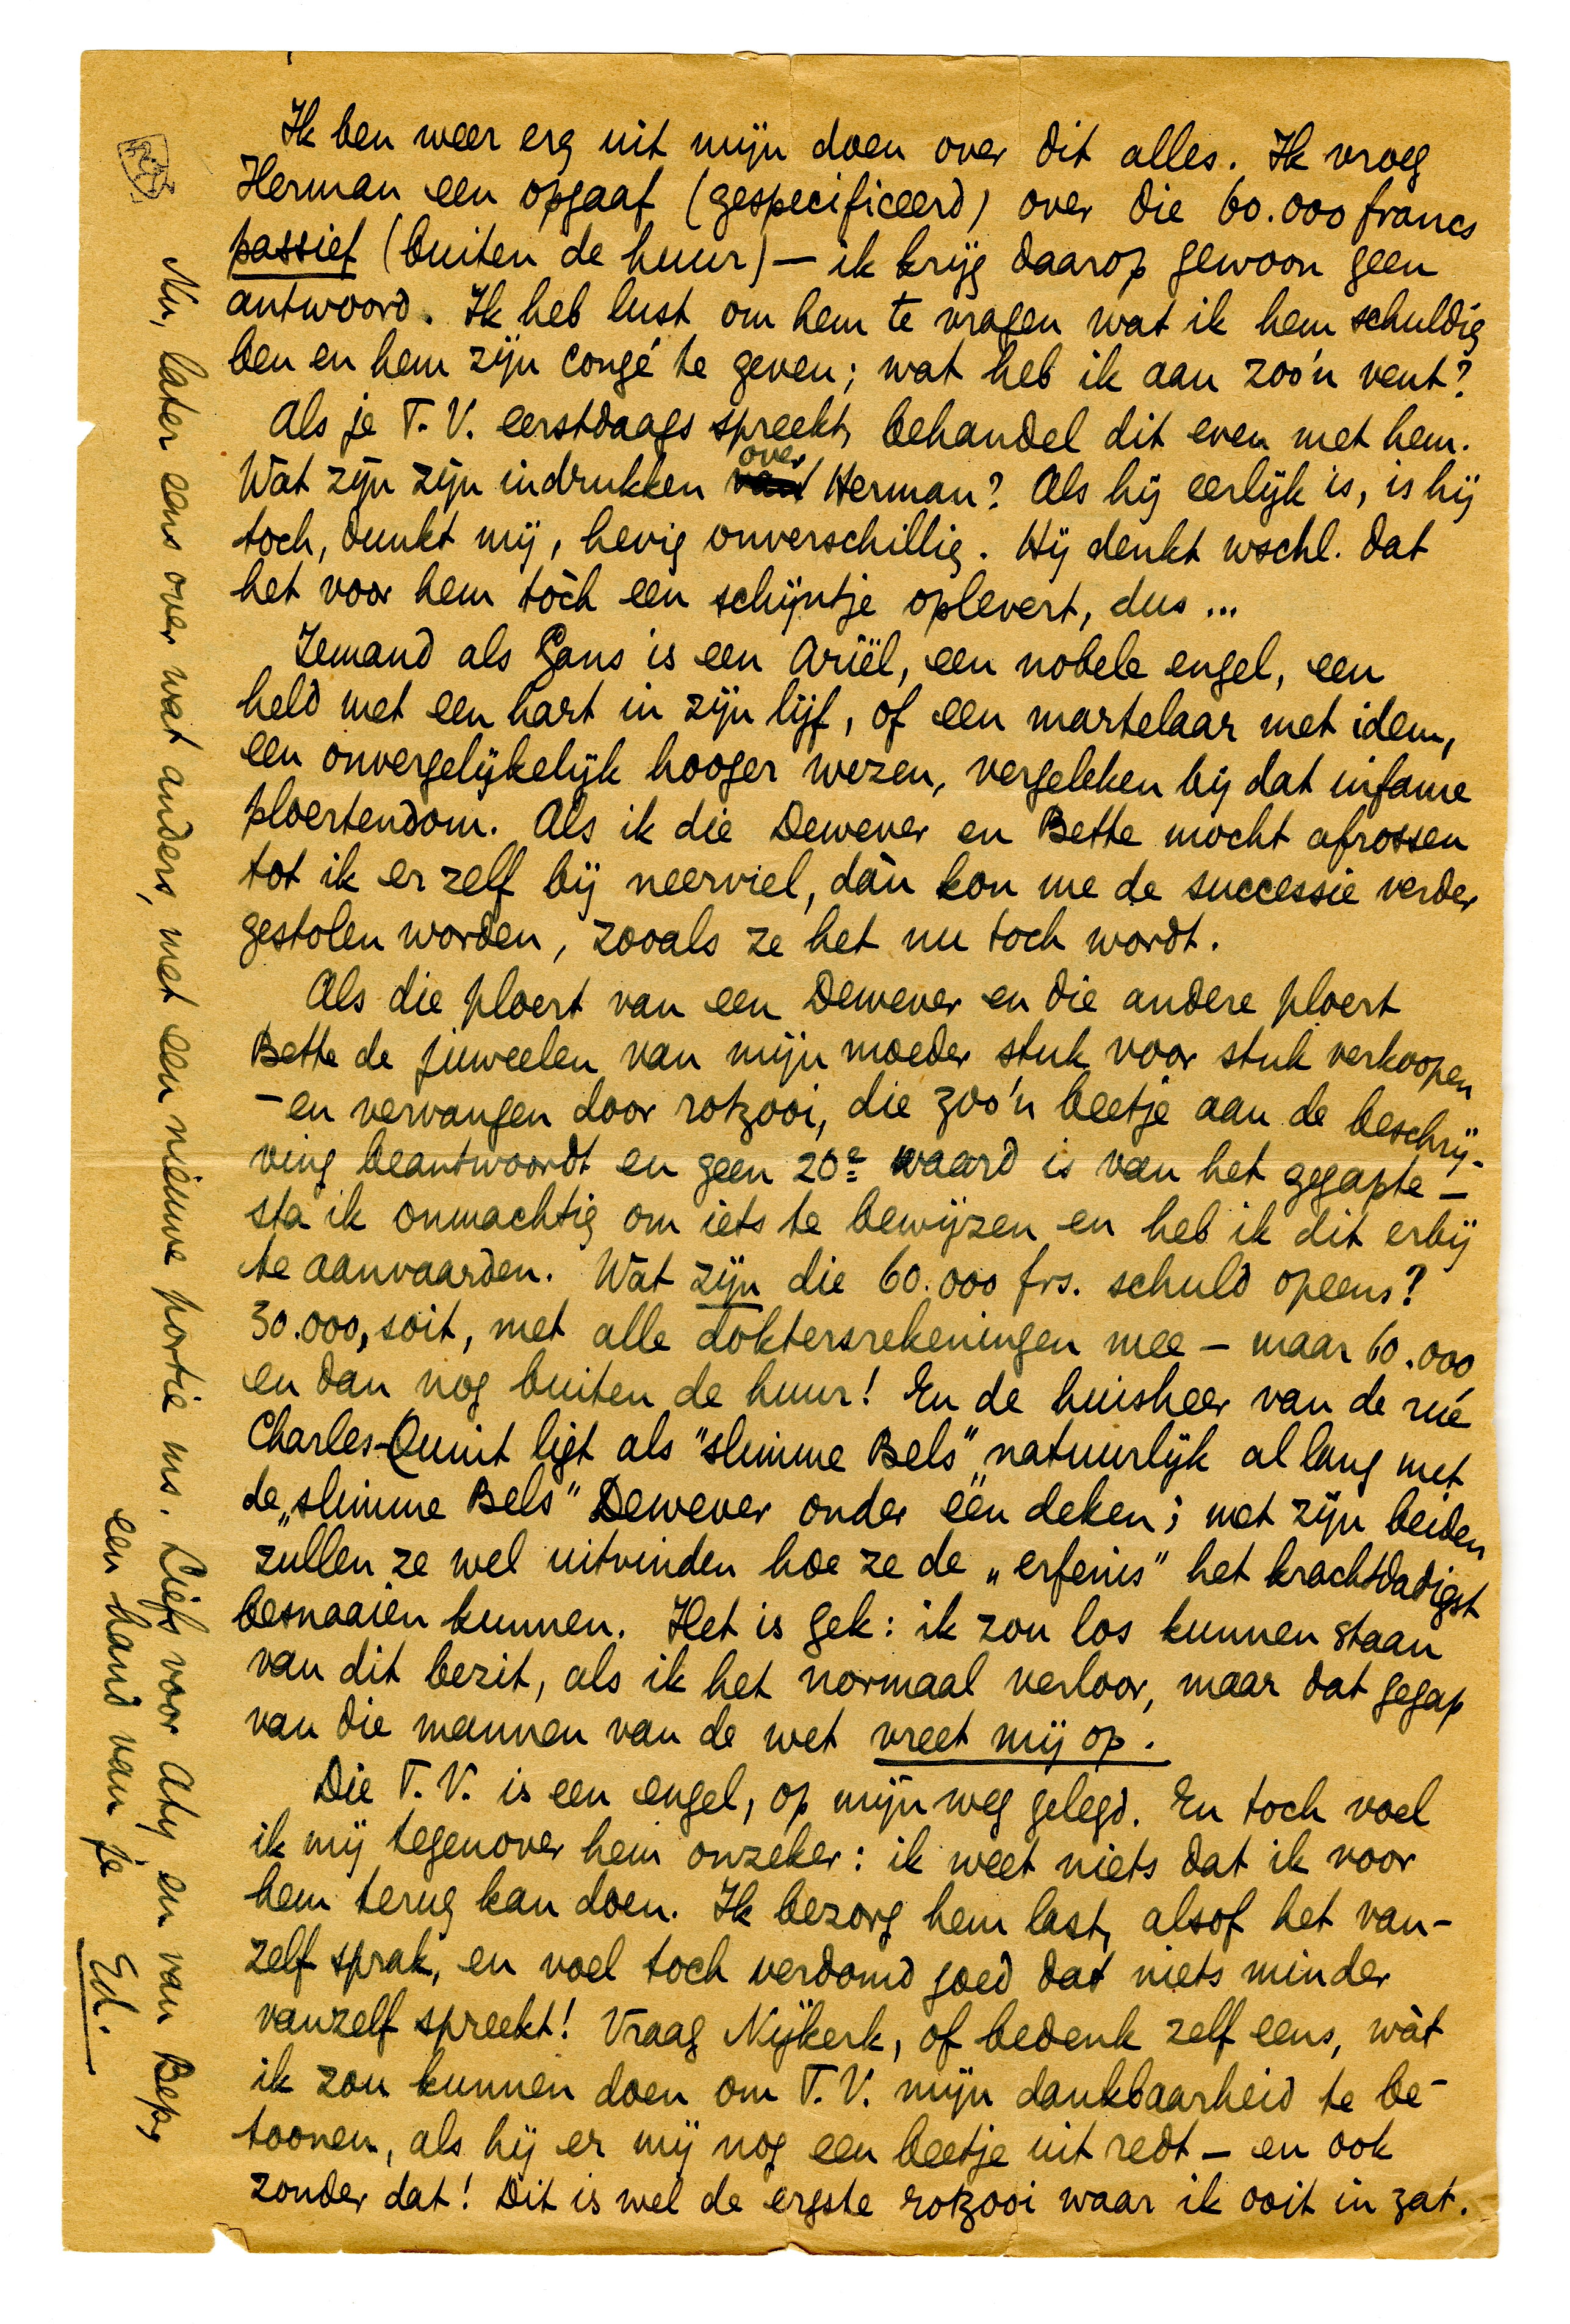 Ik ben weer erg uit mijn doen over dit alles. Ik vroeg
Herman een opgaaf (gespecificeerd) over die 60.000 francs
passief (buiten de huur) — ik krijg daarop gewoon geen
antwoord. Ik heb lust om hem te vragen wat ik hem schuldig
ben en hem zijn congé te geven; wat heb ik aan zoo'n vent?
Als je T.V. eerstdaags spreekt, behandel dit even met hem.
Wat zijn zijn indrukken over Herman? Als hij eerlijk is, is hij
toch, dunkt mij, hevig onverschillig. Hij denkt wschl. dat
het voor hem tòch een schijntje oplevert, dus ...
Iemand als Gans is een Ariël, een nobele engel, een
held met een hart in zijn lijf, of een martelaar met idem,
een onvergelijkelijk hooger wezen, vergeleken bij dat infame
ploertendom. Als ik die Dewever en Bette mocht afrossen
tot ik er zelf bij neerviel, dàn kon me de successie verder
gestolen worden, zooals ze het nu toch wordt.
Als die ploert van een Dewever en die andere ploert
Bette de juweelen van mijn moeder stuk voor stuk verkoopen
— en vervangen door rotzooi, die zoo'n beetje aan de beschrij-
ving beantwoordt en geen 20e waard is van het gegapte —
sta ik onmachtig om iets te bewijzen en heb ik dit erbij
te aanvaarden. Wat zijn die 60.000 frs. schuld opeens?
30.000, soit, met alle doktersrekeningen mee — maar 60.000
en dan nog buiten de huur! En de huisheer van de rue
Charles-Quint ligt als "slimme Bels" natuurlijk al lang met
de „slimme Bels" Dewever onder één deken; met zijn beiden
zullen ze wel uitvinden hoe ze de „erfenis" het krachtdadigst
besnaaien kunnen. Het is gek: ik zou los kunnen staan
van dit bezit, als ik het normaal verloor, maar dat gegap
van die mannen van de wet vreet mij op.
Die T.V. is een engel, op mijn weg gelegd. En toch voel
ik mij tegenover hem onzeker: ik weet niets dat ik voor
hem terug kan doen. Ik bezorg hem last, alsof het van-
zelf sprak, en voel toch verdomd goed dat niets minder
vanzelf spreekt! Vraag Nijkerk, of bedenk zelf eens, wàt
ik zou kunnen doen om T.V. mijn dankbaarheid te be-
toonen, als hij er mij nog een beetje uit redt — en ook
zonder dat! Dit is wel de ergste rotzooi waar ik ooit in zat.
Nu, later eens over wat anders, met een nieuwe portie ms. Liefs voor Aty en van Bep,
een hand van je
Ed.